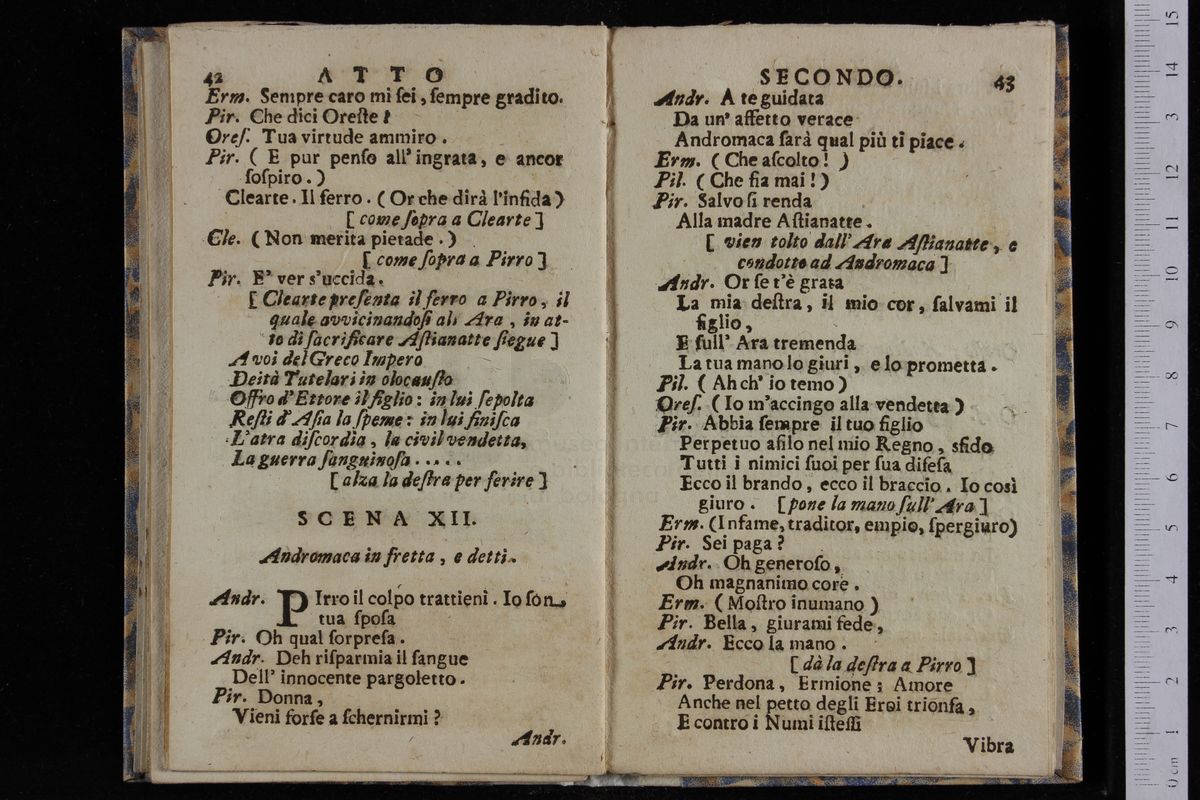 42 ATTO
Erm. Sempre caro mi ſei, ſempre gradito.
Pir. Che dici Oreſte?
Oreſ. Tua virtude ammiro.
Pir. ( E pur penſo all' ingrata, e ancor
ſoſpiro. )
Clearte. Il ferro. ( Or che dirà l'infida )
[ come ſopra a Clearte ]
Cle. ( Non merita pietade. )
[ come ſopra a Pirro ]
Pir. E' ver s'uccida.
[ Clearte preſenta il ferro a Pirro, il
quale avvicinandoſi all' Ara, in at-
to di ſacrificare Aſtianatte ſiegue ]
A voi del Greco Impero
Deità Tutelari in olocauſto
Offro d'Ettore il figlio: in lui ſepolta
Reſti d'Aſia la ſpeme: in lui finiſca
L'atra diſcordia, la civil vendetta,
La guerra ſanguinoſa.....
[ alza la deſtra per ferire ]
SCENA XII.
Andromaca in fretta, e detti.
Andr. PIrro il colpo trattieni. Io ſon
tua ſpoſa
Pir. Oh qual ſorpreſa.
Andr. Deh riſparmia il ſangue
Dell' innocente pargoletto.
Pir. Donna,
Vieni forſe a ſchernirmi?
Andr.
SECONDO. 43
Andr. A te guidata
Da un' affetto verace
Andromaca ſarà qual più ti piace.
Erm. ( Che aſcolto! )
Pil. ( Che fia mai! )
Pir. Salvo ſi renda
Alla madre Aſtianatte.
[ vien tolto dall' Ara Aſtianatte, e
condotto ad Andromaca ]
Andr. Or ſe t'è grata
La mia deſtra, il mio cor, ſalvami il
figlio,
E ſull' Ara tremenda
La tua mano lo giuri, e lo prometta.
Pil. ( Ah ch' io temo )
Oreſ. ( Io m'accingo alla vendetta )
Pir. Abbia ſempre il tuo figlio
Perpetuo aſilo nel mio Regno, sfido
Tutti i nimici ſuoi per ſua difeſa
Ecco il brando, ecco il braccio. Io così
giuro. [ pone la mano ſull' Ara ]
Erm. (Infame, traditor, empio, ſpergiuro)
Pir. Sei paga?
Andr. Oh generoſo,
Oh magnanimo core.
Erm. ( Moſtro inumano )
Pir. Bella, giurami fede,
Andr. Ecco la mano.
[ dà la deſtra a Pirro ]
Pir. Perdona, Ermione; Amore
Anche nel petto degli Eroi trionfa,
E contro i Numi iſteſſi
Vibra